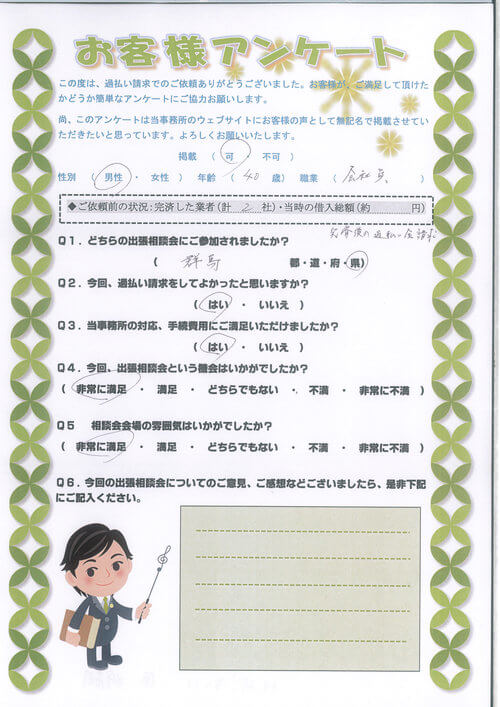 お客様アンケート
この度は、過払い請求でのご依頼ありがとうございました。お客様が、ご満足して頂けた
かどうか簡単なアンケートにご協力お願いします。
尚、このアンケートは当事務所のウェブサイトにお客様の声として無記名で掲載させてい
ただきたいと思っています。よろしくお願いいたします。
掲載 （ 可 ・ 不可 ）
性別 （ 男性 ・ 女性 ） 年齢 （ 40 歳） 職業 （ 会社員 ）
◆ご依頼前の状況：完済した業者（計 2 社）・当時の借入総額（約 円）
完済後の過払い金請求
Q1．どちらの出張相談会にご参加されましたか？
（ 群馬 都・道・府・県）
Q2．今回、過払い請求をしてよかったと思いますか？
（ はい ・ いいえ ）
Q3．当事務所の対応、手続費用にご満足いただけましたか？
（ はい ・ いいえ ）
Q4．今回、出張相談会という機会はいかがでしたか？
（ 非常に満足 ・ 満足 ・ どちらでもない ・ 不満 ・ 非常に不満 ）
Q5 相談会会場の雰囲気はいかがでしたか？
（ 非常に満足 ・ 満足 ・ どちらでもない ・ 不満 ・ 非常に不満 ）
Q6．今回の出張相談会についてのご意見、ご感想などございましたら、是非下記
にご記入ください。